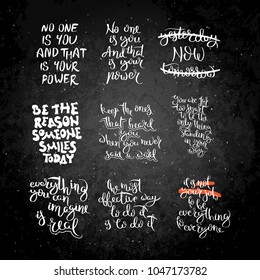 NO ONE
IS YOU
AND THAT
IS YOUR
POWER
No one
is you
And that
is your
power
yesterday
NOW
tomorrow
BE THE
REASON
SOMEONE
SMILES
TODAY
keep the ones
that heard
you
when you
never
said a word
You are far
too smart
to be
the only
thing
standing
in your
way
everything
you can
imagine
is real
the most
effective way
to do it
is to do it
it is not
your job
to be
everything
to everyone
shutterstock
IMAGE ID: 1047173782
www.shutterstock.com